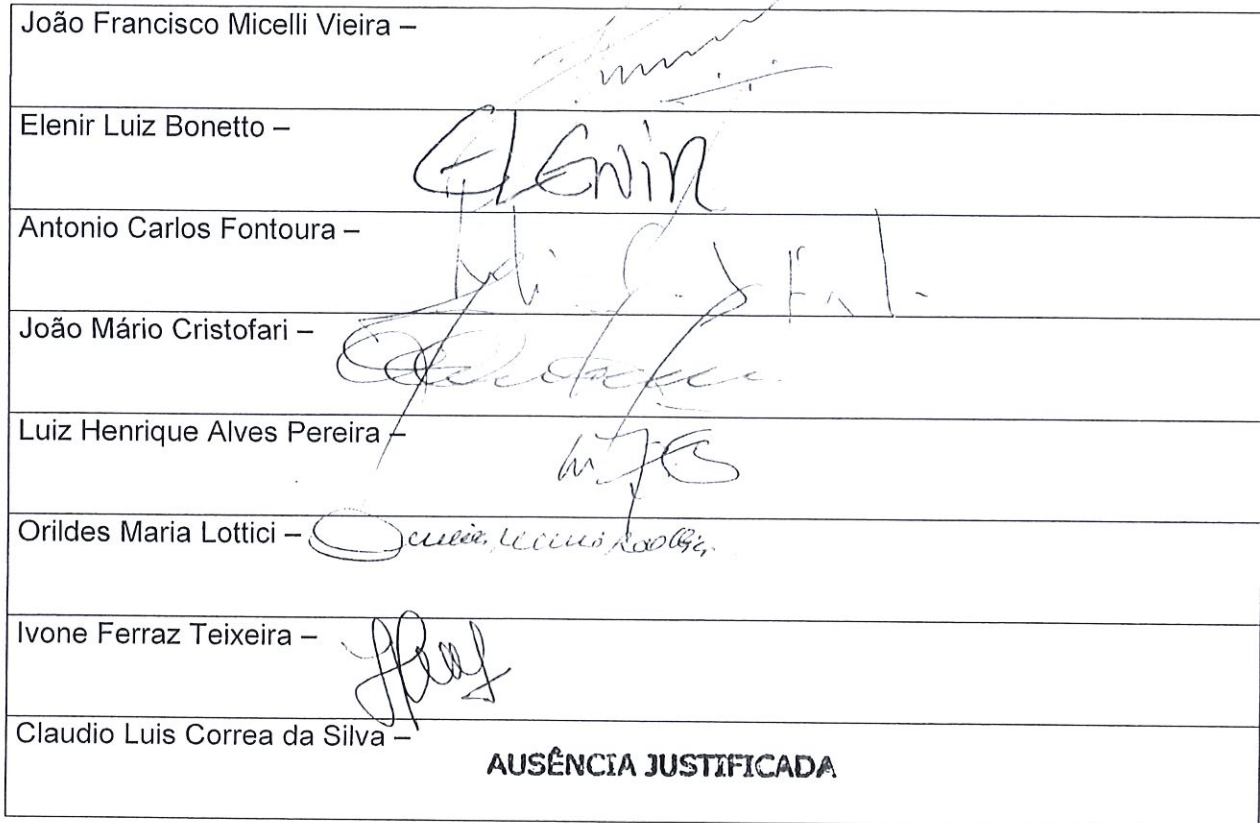 João Francisco Micelli Vieira –
Elenir Luiz Bonetto –
Elenir
Antonio Carlos Fontoura –
João Mário Cristofari –
Luiz Henrique Alves Pereira –
Orildes Maria Lottici –
Ivone Ferraz Teixeira –
Claudio Luis Correa da Silva –
AUSÊNCIA JUSTIFICADA